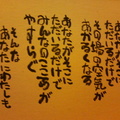 あなたがそこに
ただいるだけで
その場の空気が
あかるくなる
あなたがそこに
ただいるだけで
みんなのこころが
やすらぐ
そんな
あなたにわたしも